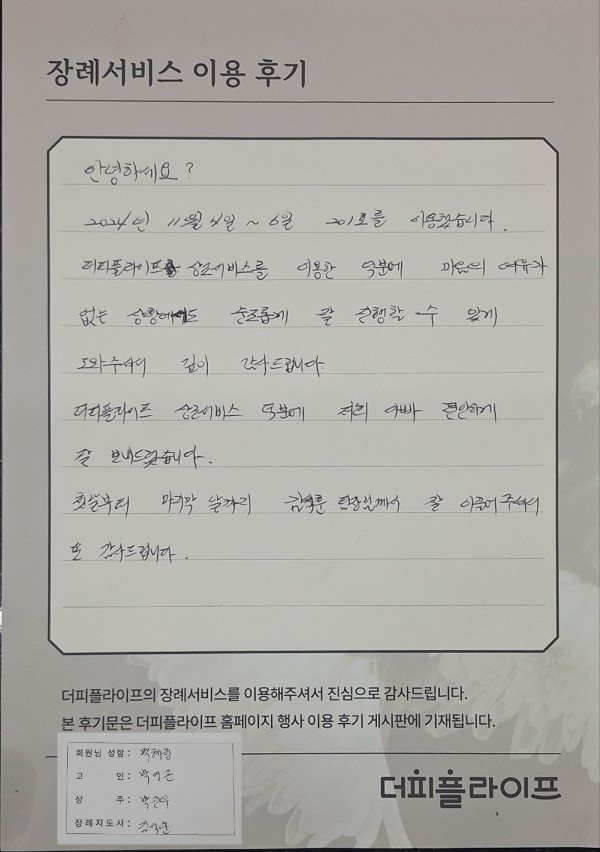 장례서비스 이용 후기
안녕하세요?
2024년 11월 4일 ~ 6일 201호를 이용했습니다.
더피플라이프 상조서비스를 이용한 덕분에 마음의 여유가
없는 상황에서도 순조롭게 잘 진행할 수 있게
도와주셔서 깊이 감사드립니다.
더피플라이프 상조서비스 덕분에 저희 아빠 편안하게
잘 보내드렸습니다.
첫날부터 마지막 날까지 팀장님께서 잘 이끌어주셔서
또 감사드립니다.
더피플라이프의 장례서비스를 이용해주셔서 진심으로 감사드립니다.
본 후기문은 더피플라이프 홈페이지 행사 이용 후기 게시판에 기재됩니다.
회원님 성함 :
고 인 :
상 주 :
장례지도사 :
더피플라이프